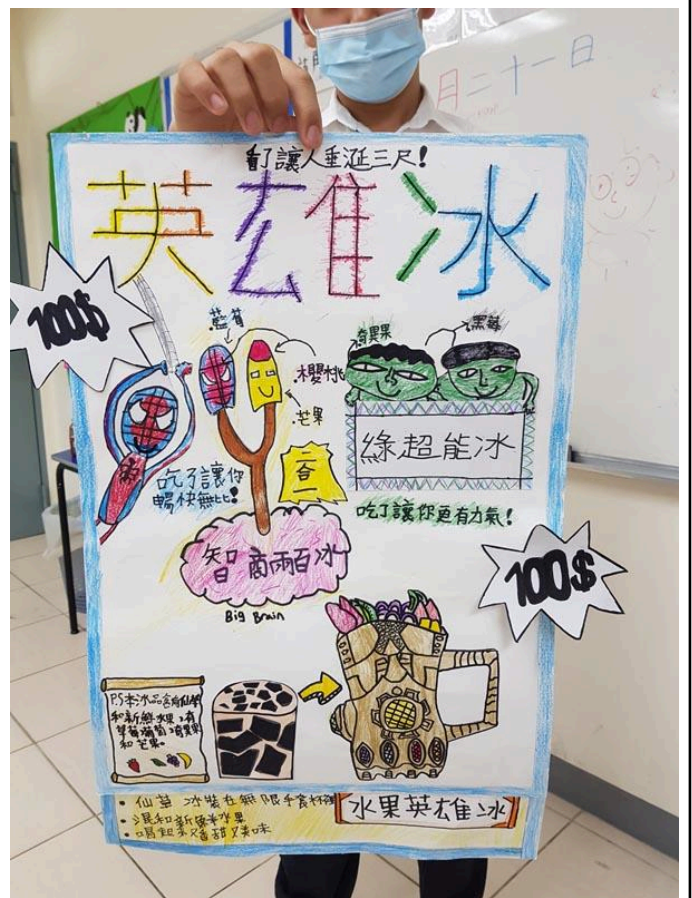 月二十一日
看了讓人垂涎三尺!
英雄冰
100$
藍莓
櫻桃
芒果
奇異果
黑莓
綠超能冰
吃了讓你
暢快無比!
二合一
吃了讓你更有力氣!
智商兩百冰
Big Brain
100$
P.S本冰品含有仙草
和新鮮水果,有
草莓葡萄,奇異果
和芒果。
• 仙草冰裝在無限手套杯裡
• 混和新鮮水果
• 喝起來香甜又美味
水果英雄冰